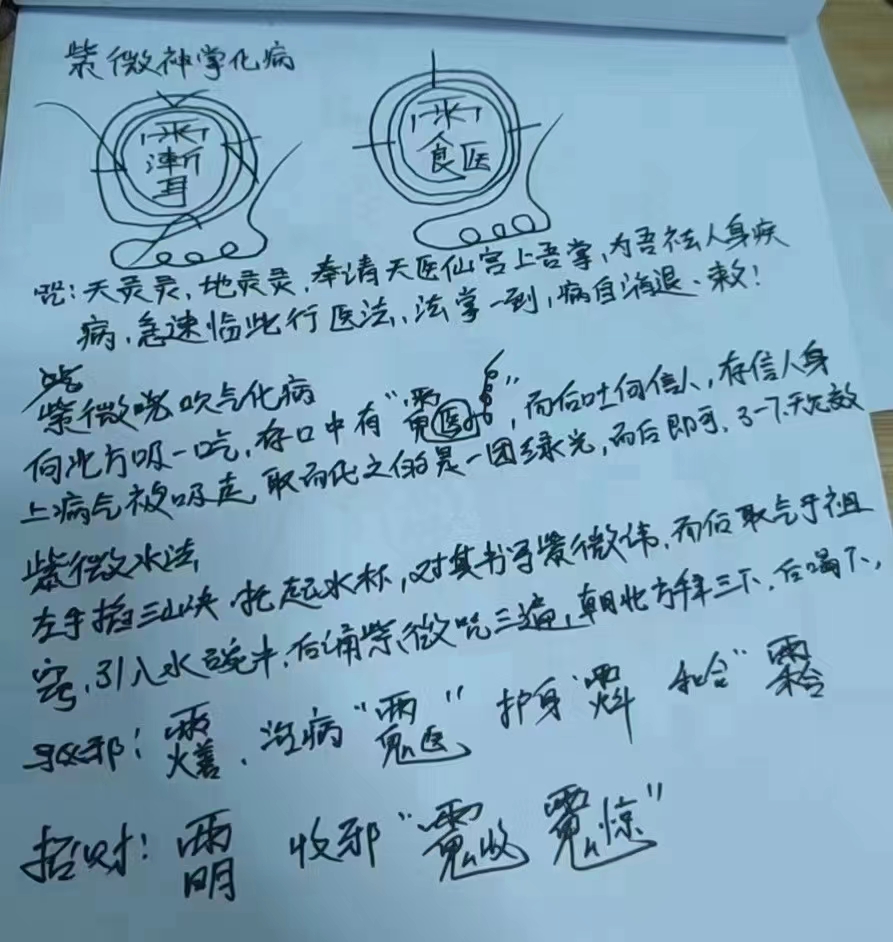 紫微神掌化病
雨 漸 耳
雨 食 医
咒：天灵灵，地灵灵，奉请天医仙宫上吾掌，为吾祛人身疾
病，急速临此行医法，法掌一到，病自消退。敕！
紫微 吹气化病
向北方吸一吃，存口中有“ ”，而后吐向信人，存信人身
上病气被吸走，取而代之的是一团绿光，而后即可，3-7天见效
紫微水法，
左手掐三山决，托起水杯，对其书写紫微讳，而后取气于祖
窍，引入水碗中，后诵紫微咒三遍，朝北方拜三下，后喝下，
邪： ，治病“ ” 护身“ 和合“
招财： 收邪“ ”